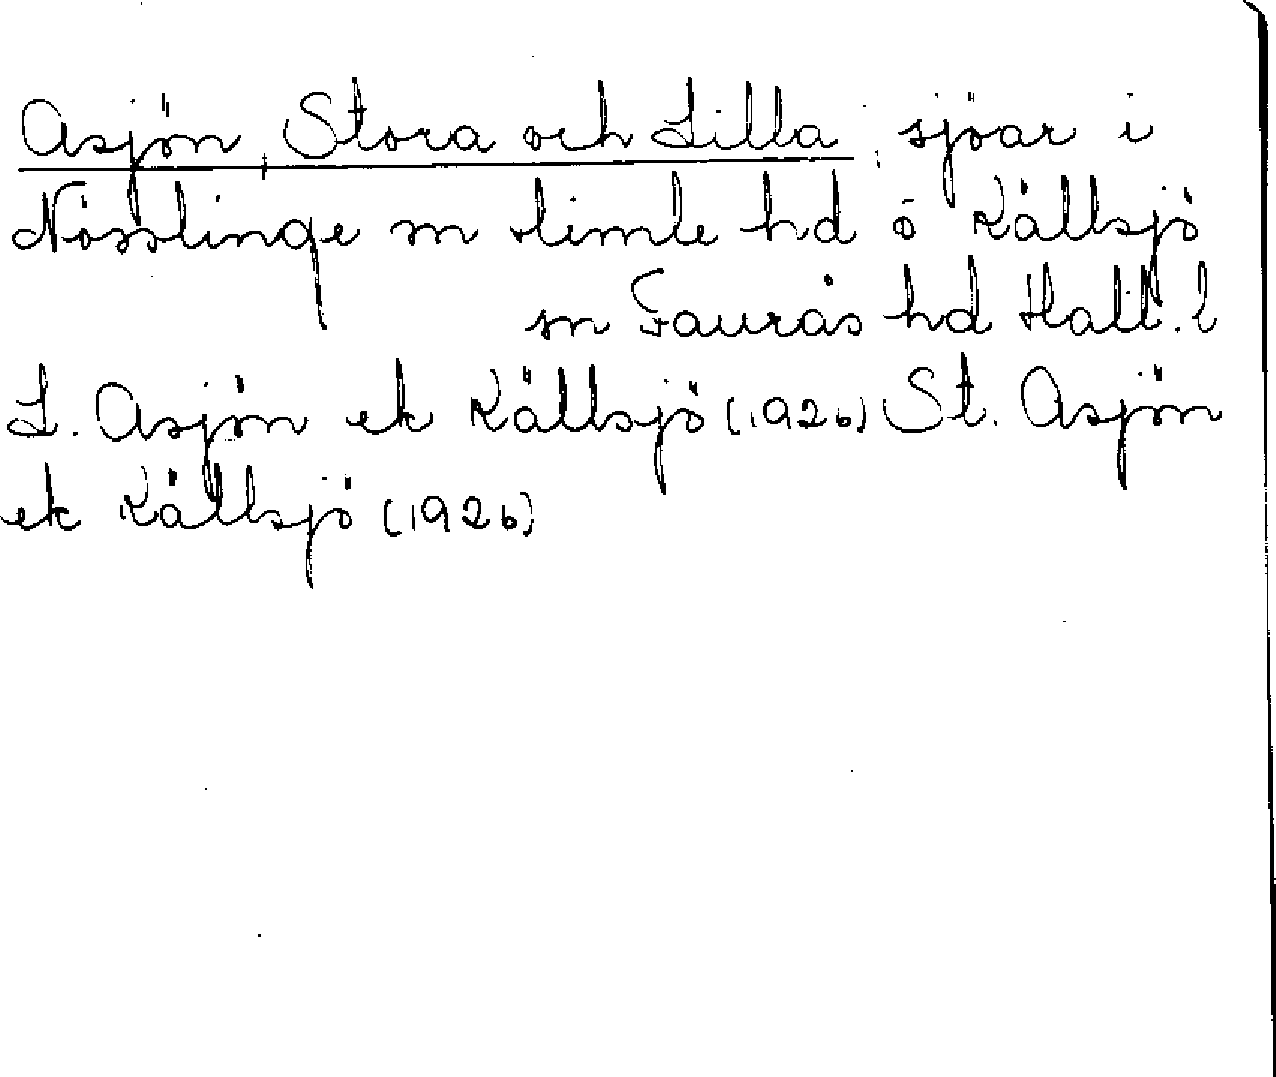 Asjön, Stora och Lilla, sjöar i
Nösslinge sn Himle hd o Källsjö
sn Faurås hd Hall. l
L. Asjön ek Källsjö (1926) St. Asjön
ek Källsjö (1926)